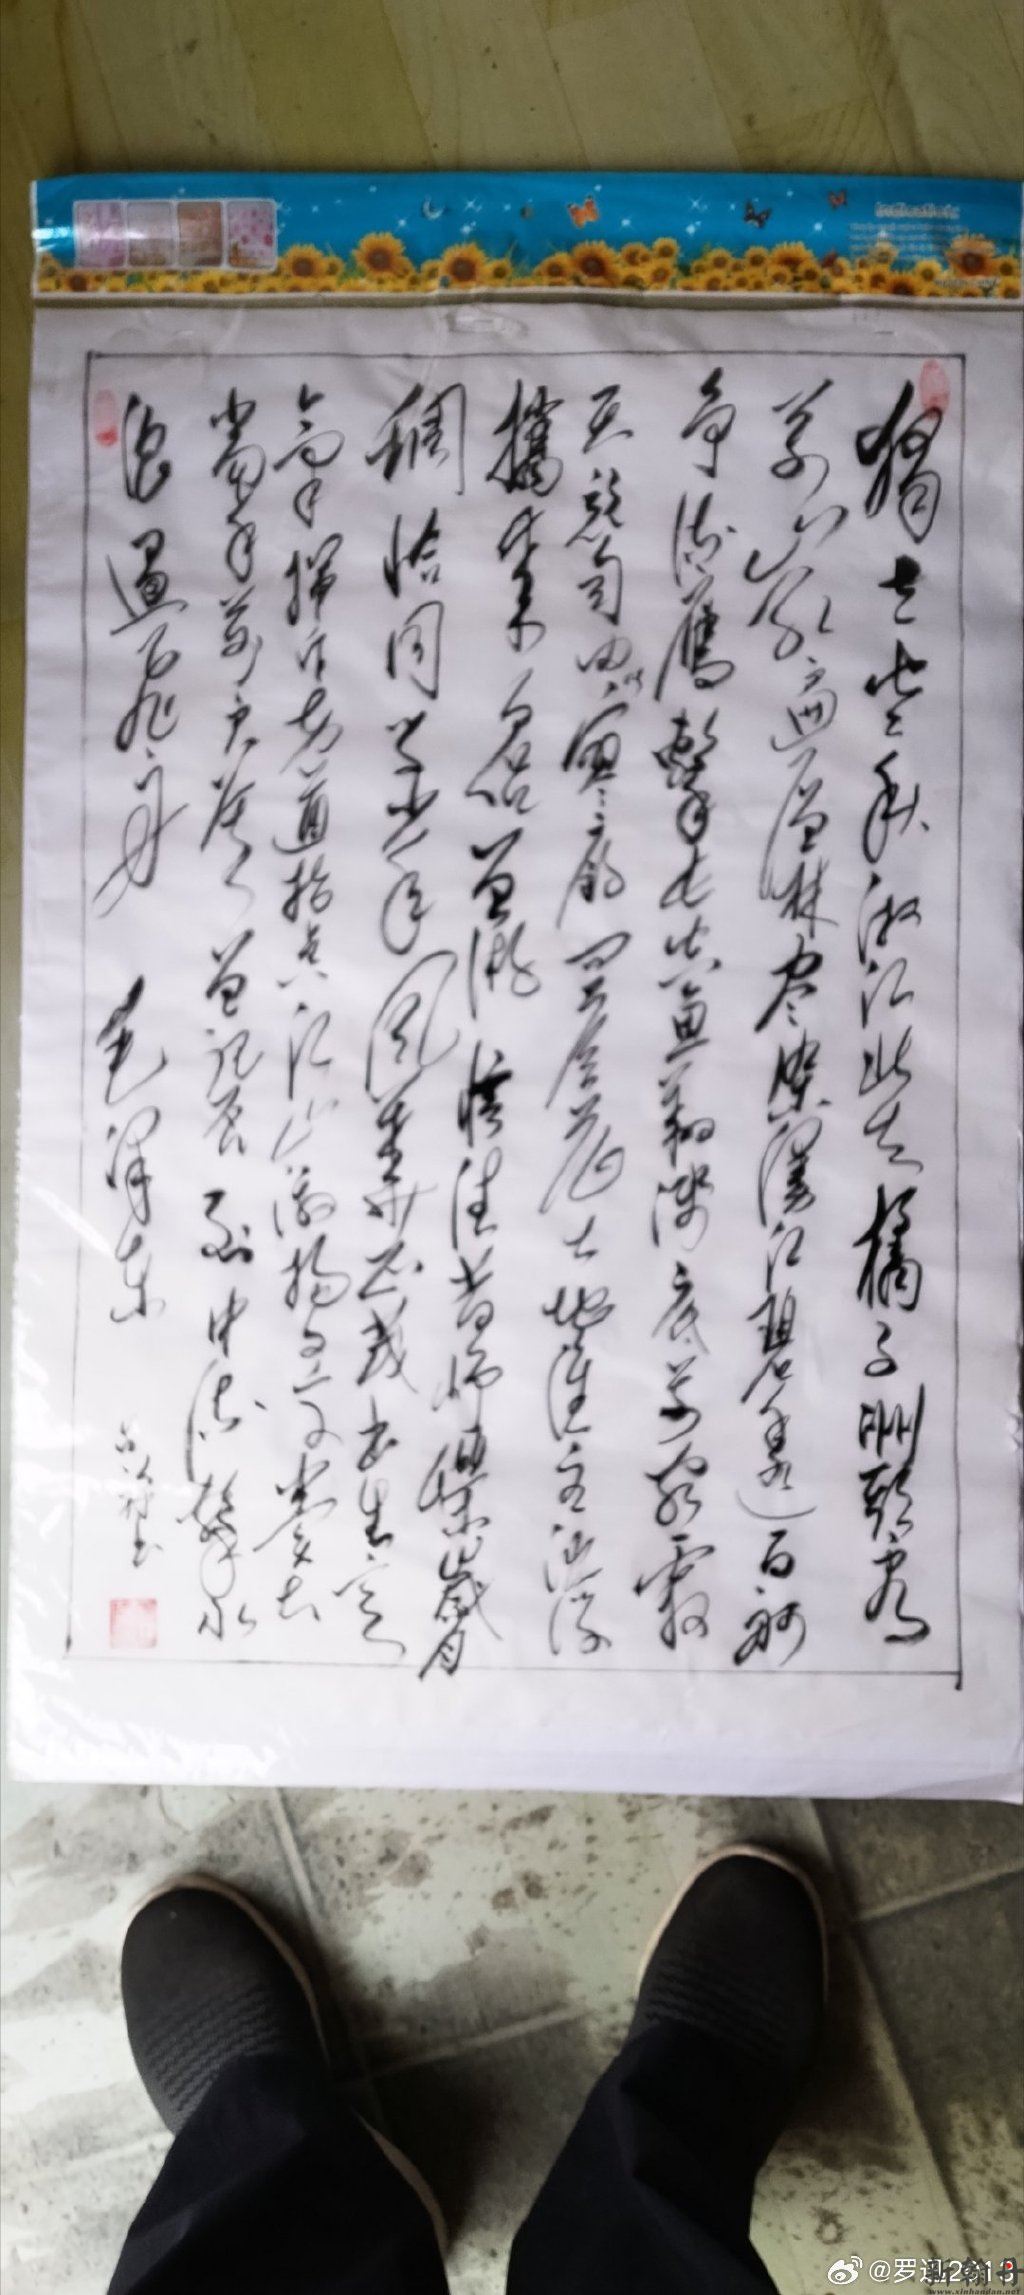 独立寒秋湘江北去橘子洲头看
万山红遍层林尽染漫江碧透百舸
争流鹰击长空鱼翔浅底万类霜
天竞自由寥廓问苍茫大地谁主沉浮
携来百侣曾游忆往昔峥嵘岁月
稠恰同学少年风华正茂书生意
气挥斥方遒指点江山激扬文字粪土
当年万户侯曾记否到中流击水
浪遏飞舟 毛泽东
@罗迅2613
www.xinhandan.net